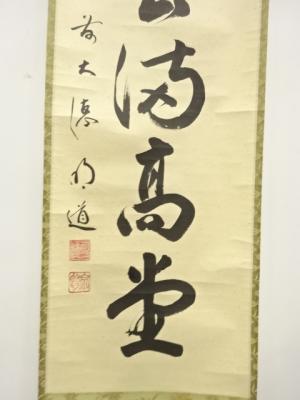 満高堂
前大徳明道